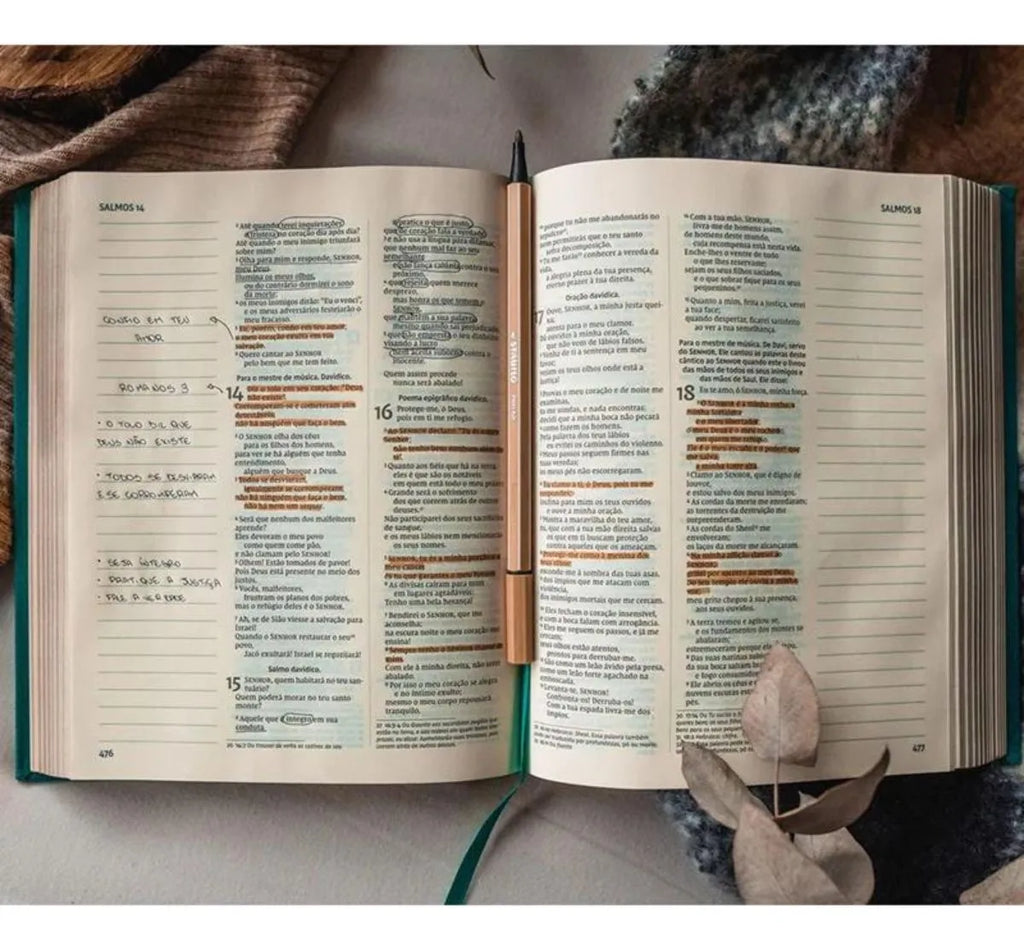 SALMOS 14
CONFIO EM TEU
AMOR
ROMANOS 3
• O TOLO DIZ QUE
DEUS NÃO EXISTE
• TODOS SE DESVIARAM
E SE CORROMPERAM
• SEJA ÍNTEGRO
• PRATIQUE A JUSTIÇA
• FALE A VERDADE
476
² Até quando terei inquietações
e tristeza no coração dia após dia?
Até quando o meu inimigo triunfará
sobre mim?
³ Olha para mim e responde, SENHOR,
meu Deus.
Ilumina os meus olhos,
ou do contrário dormirei o sono
da morte;
⁴ os meus inimigos dirão: "Eu o venci",
e os meus adversários festejarão o
meu fracasso.
⁵ Eu, porém, confio em teu amor;
o meu coração exulta em tua
salvação.
⁶ Quero cantar ao SENHOR
pelo bem que me tem feito.
Para o mestre de música. Davídico.
14 Diz o tolo em seu coração: "Deus
não existe!"
Corromperam-se e cometeram atos
detestáveis;
não há ninguém que faça o bem.
² O SENHOR olha dos céus
para os filhos dos homens,
para ver se há alguém que tenha
entendimento,
alguém que busque a Deus.
³ Todos se desviaram,
igualmente se corromperam;
não há ninguém que faça o bem,
não há nem um sequer.
⁴ Será que nenhum dos malfeitores
aprende?
Eles devoram o meu povo
como quem come pão,
e não clamam pelo SENHOR!
⁵ Olhem! Estão tomados de pavor!
Pois Deus está presente no meio dos
justos.
⁶ Vocês, malfeitores,
frustram os planos dos pobres,
mas o refúgio deles é o SENHOR.
⁷ Ah, se de Sião viesse a salvação para
Israel!
Quando o SENHOR restaurar o seu
povo,
Jacó exultará! Israel se regozijará!
Salmo davídico.
15 SENHOR, quem habitará no teu san-
tuário?
Quem poderá morar no teu santo
monte?
² Aquele que é íntegro em sua
conduta
e pratica o que é justo,
que de coração fala a verdade
³ e não usa a língua para difamar,
que nenhum mal faz ao seu
semelhante
e não lança calúnia contra o seu
próximo,
⁴ que rejeita quem merece
desprezo,
mas honra os que temem o
SENHOR,
que mantém a sua palavra,
mesmo quando sai prejudicado,
⁵ que não empresta o seu dinheiro
visando a lucro
nem aceita suborno contra o
inocente.
Quem assim procede
nunca será abalado!
Poema epigráfico davídico.
16 Protege-me, ó Deus,
pois em ti me refugio.
² Ao SENHOR declaro: "Tu és o meu
Senhor;
não tenho bem nenhum além de
ti".
³ Quanto aos fiéis que há na terra,
eles é que são os notáveis
em quem está todo o meu prazer.
⁴ Grande será o sofrimento
dos que correm atrás de outros
deuses.
Não participarei dos seus sacrifícios
de sangue,
e os meus lábios nem mencionarão
os seus nomes.
⁵ SENHOR, tu és a minha porção e o
meu cálice;
és tu que garantes o meu futuro.
⁶ As divisas caíram para mim
em lugares agradáveis:
Tenho uma bela herança!
⁷ Bendirei o SENHOR, que me
aconselha;
na escura noite o meu coração me
ensina!
⁸ Sempre tenho o SENHOR diante de
mim.
Com ele à minha direita, não serei
abalado.
⁹ Por isso o meu coração se alegra
e no íntimo exulto;
mesmo o meu corpo repousará
tranquilo,
STABILO
SALMOS 18
¹⁰ porque tu não me abandonarás no
sepulcro,
nem permitirás que o teu santo
sofra decomposição.
¹¹ Tu me farás conhecer a vereda da
vida,
a alegria plena da tua presença,
eterno prazer à tua direita.
Oração davídica.
17 Ouve, SENHOR, a minha justa quei-
xa;
atenta para o meu clamor.
Dá ouvidos à minha oração,
que não vem de lábios falsos.
² Venha de ti a sentença em meu
favor;
vejam os teus olhos onde está a
justiça!
³ Provas o meu coração e de noite me
examinas,
tu me sondas, e nada encontras;
decidi que a minha boca não pecará
⁴ como fazem os homens.
Pela palavra dos teus lábios
eu evitei os caminhos do violento.
⁵ Meus passos seguem firmes nas
tuas veredas;
os meus pés não escorregaram.
⁶ Eu clamo a ti, ó Deus, pois tu me
respondes;
inclina para mim os teus ouvidos
e ouve a minha oração.
⁷ Mostra a maravilha do teu amor,
tu, que com a tua mão direita salvas
os que em ti buscam proteção
contra aqueles que os ameaçam.
⁸ Protege-me como à menina dos
teus olhos;
esconde-me à sombra das tuas asas,
⁹ dos ímpios que me atacam com
violência,
dos inimigos mortais que me cercam.
¹⁰ Eles fecham o coração insensível,
e com a boca falam com arrogância.
¹¹ Eles me seguem os passos, e já me
cercam;
seus olhos estão atentos,
prontos para derrubar-me.
¹² São como um leão ávido pela presa,
como um leão forte agachado na
emboscada.
¹³ Levanta-te, SENHOR!
Confronta-os! Derruba-os!
Com a tua espada livra-me dos
ímpios.
¹⁴ Com a tua mão, SENHOR,
livra-me de homens assim,
de homens deste mundo,
cuja recompensa está nesta vida.
Enche-lhes o ventre de tudo
o que lhes reservaste;
sejam os seus filhos saciados,
e o que sobrar fique para os seus
pequeninos.
¹⁵ Quanto a mim, feita a justiça, verei
a tua face;
quando despertar, ficarei satisfeito
ao ver a tua semelhança.
Para o mestre de música. De Davi, servo
do SENHOR. Ele cantou as palavras deste
cântico ao SENHOR quando este o livrou
das mãos de todos os seus inimigos e
das mãos de Saul. Ele disse:
18 Eu te amo, ó SENHOR, minha força.
² O SENHOR é a minha rocha, a
minha fortaleza
e o meu libertador;
o meu Deus é o meu rochedo,
em quem me refugio.
Ele é o meu escudo e o poder que
me salva,
a minha torre alta.
³ Clamo ao SENHOR, que é digno de
louvor,
e estou salvo dos meus inimigos.
⁴ As cordas da morte me enredaram;
as torrentes da destruição me
surpreenderam.
⁵ As cordas do Sheol me
envolveram;
os laços da morte me alcançaram.
⁶ Na minha aflição clamei ao
SENHOR;
gritei por socorro ao meu Deus.
Do seu templo ele ouviu a minha
voz;
meu grito chegou à sua presença,
aos seus ouvidos.
⁷ A terra tremeu e agitou-se,
e os fundamentos dos montes se
abalaram;
estremeceram porque ele
⁸ Das suas narinas subiu
da sua boca saíram
e fogo consumidor
⁹ Ele abriu os céus e
nuvens escuras
pés.
477